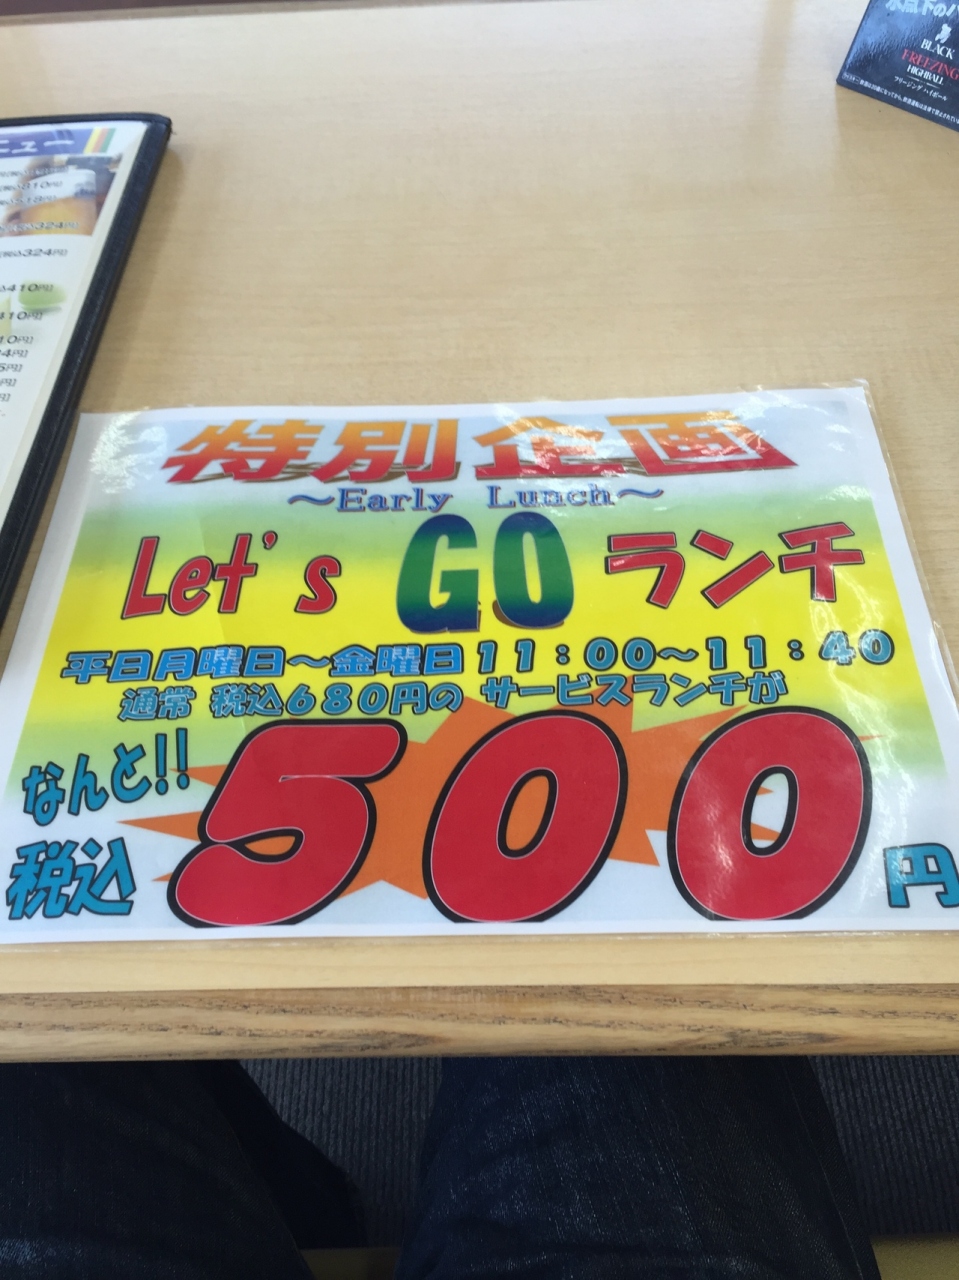 氷点下の
BLACK
FREEZING
HIGHBALL
フリージング ハイボール
ニュー
810円
324円
税込324円
410円
410円
特別企画
～Early Lunch～
Let's GO ランチ
平日月曜日～金曜日11：00～11：40
通常 税込680円の サービスランチが
なんと!!
税込 500 円